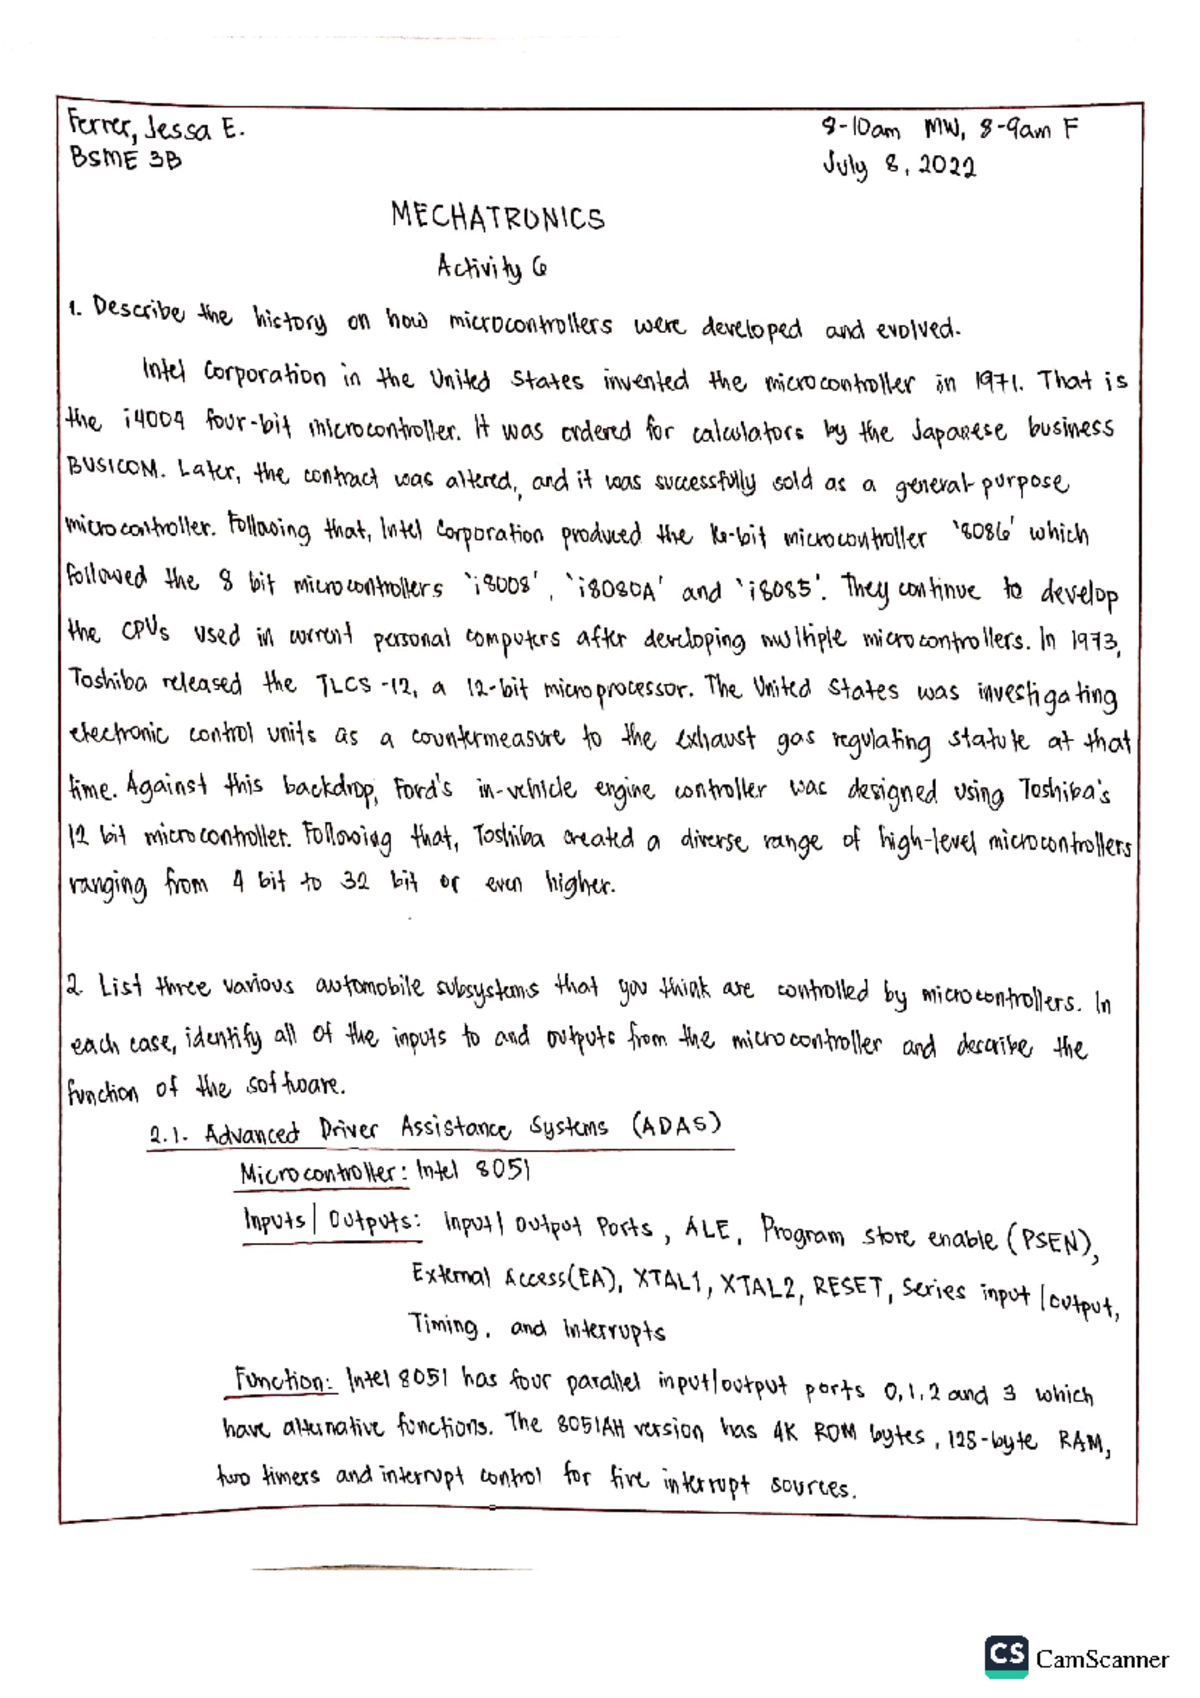 Ferrer, Jessa E.
8-10am MW, 8-9am F
BSME 3B
July 8, 2022
MECHATRONICS
Activity 6
1. Describe the history on how microcontrollers were developed and evolved.
Intel Corporation in the United States invented the microcontroller in 1971. That is
the i4004 four-bit microcontroller. It was ordered for calculators by the Japanese business
BUSICOM. Later, the contract was altered, and it was successfully sold as a general-purpose
microcontroller. Following that, Intel Corporation produced the 16-bit microcontroller '8086' which
followed the 8 bit microcontrollers 'i8008', 'i8080A' and 'i8085'. They continue to develop
the CPUs used in current personal computers after developing multiple microcontrollers. In 1973,
Toshiba released the TLCS-12, a 12-bit microprocessor. The United States was investigating
electronic control units as a countermeasure to the exhaust gas regulating statute at that
time. Against this backdrop, Ford's in-vehicle engine controller was designed using Toshiba's
12 bit microcontroller. Following that, Toshiba created a diverse range of high-level microcontrollers
ranging from 4 bit to 32 bit or even higher.
2. List three various automobile subsystems that you think are controlled by microcontrollers. In
each case, identify all of the inputs to and outputs from the microcontroller and describe the
function of the software.
2.1. Advanced Driver Assistance Systems (ADAS)
Microcontroller: Intel 8051
Inputs/Outputs: Input/Output Ports, ALE, Program store enable (PSEN),
External Access(EA), XTAL1, XTAL2, RESET, Series input/output,
Timing, and Interrupts
Function: Intel 8051 has four parallel input/output ports 0,1,2 and 3 which
have alternative functions. The 8051AH version has 4K ROM bytes, 128-byte RAM,
two timers and interrupt control for five interrupt sources.
CS CamScanner